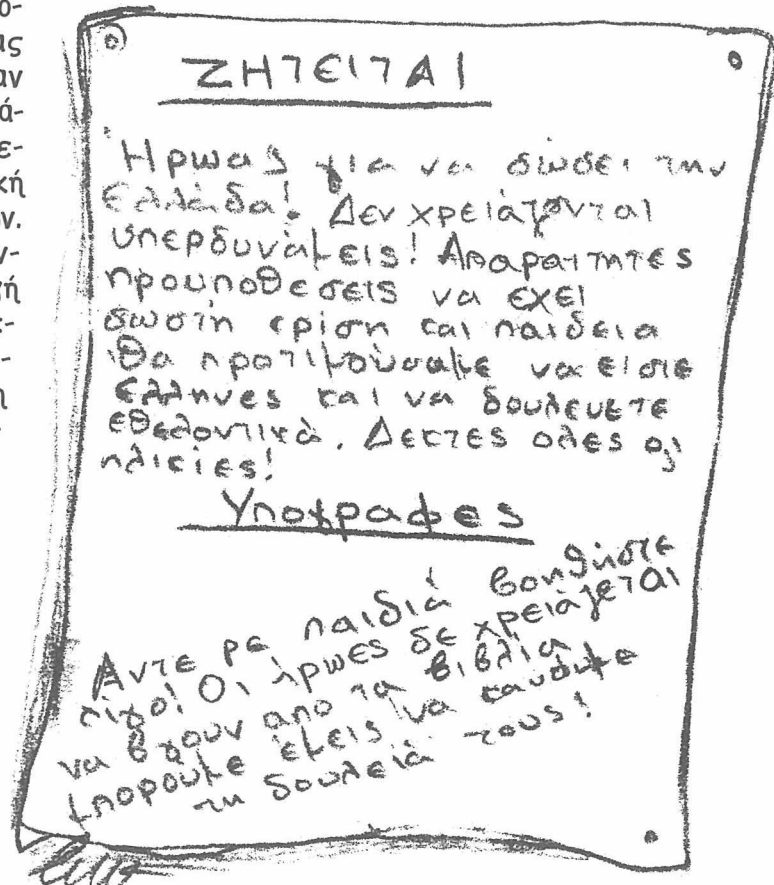 ΖΗΤΕΙΤΑΙ
Ήρωας για να σώσει την
Ελλάδα! Δεν χρειάζονται
υπερδυνάμεις! Απαραιτητες
προυποθεσεις να εχει
σωστή κρίση και παιδεια
Θα προτιμούσαμε να είστε
Ελληνες και να δουλευετε
εθελοντικά. Δεκτες ολες οι
ηλικίες!
Υπογραφες
Αντε ρε παιδιά βοηθήστε
λίγο! Οι ήρωες δε χρειάζεται
να βγουν απο τα βιβλία
μπορουμε εμεις να κανουμε
τη δουλειά τους!